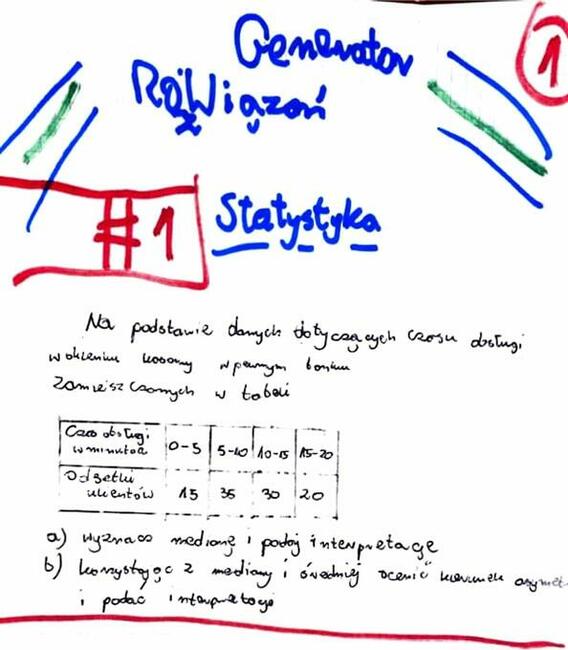 Generator
1
Rozwiązań
#1
Statystyka
Na podstawie danych dotyczących czasu obsługi
w okienku kasowym w pewnym banku
zamieszczonych w tabeli
Czas obsługi w minutach 0-5 5-10 10-15 15-20
Odsetki klientów 15 35 30 20
a) wyznacz medianę i podaj interpretację
b) korzystając z mediany i średniej ocenić kierunek asymet
i podać interpretację